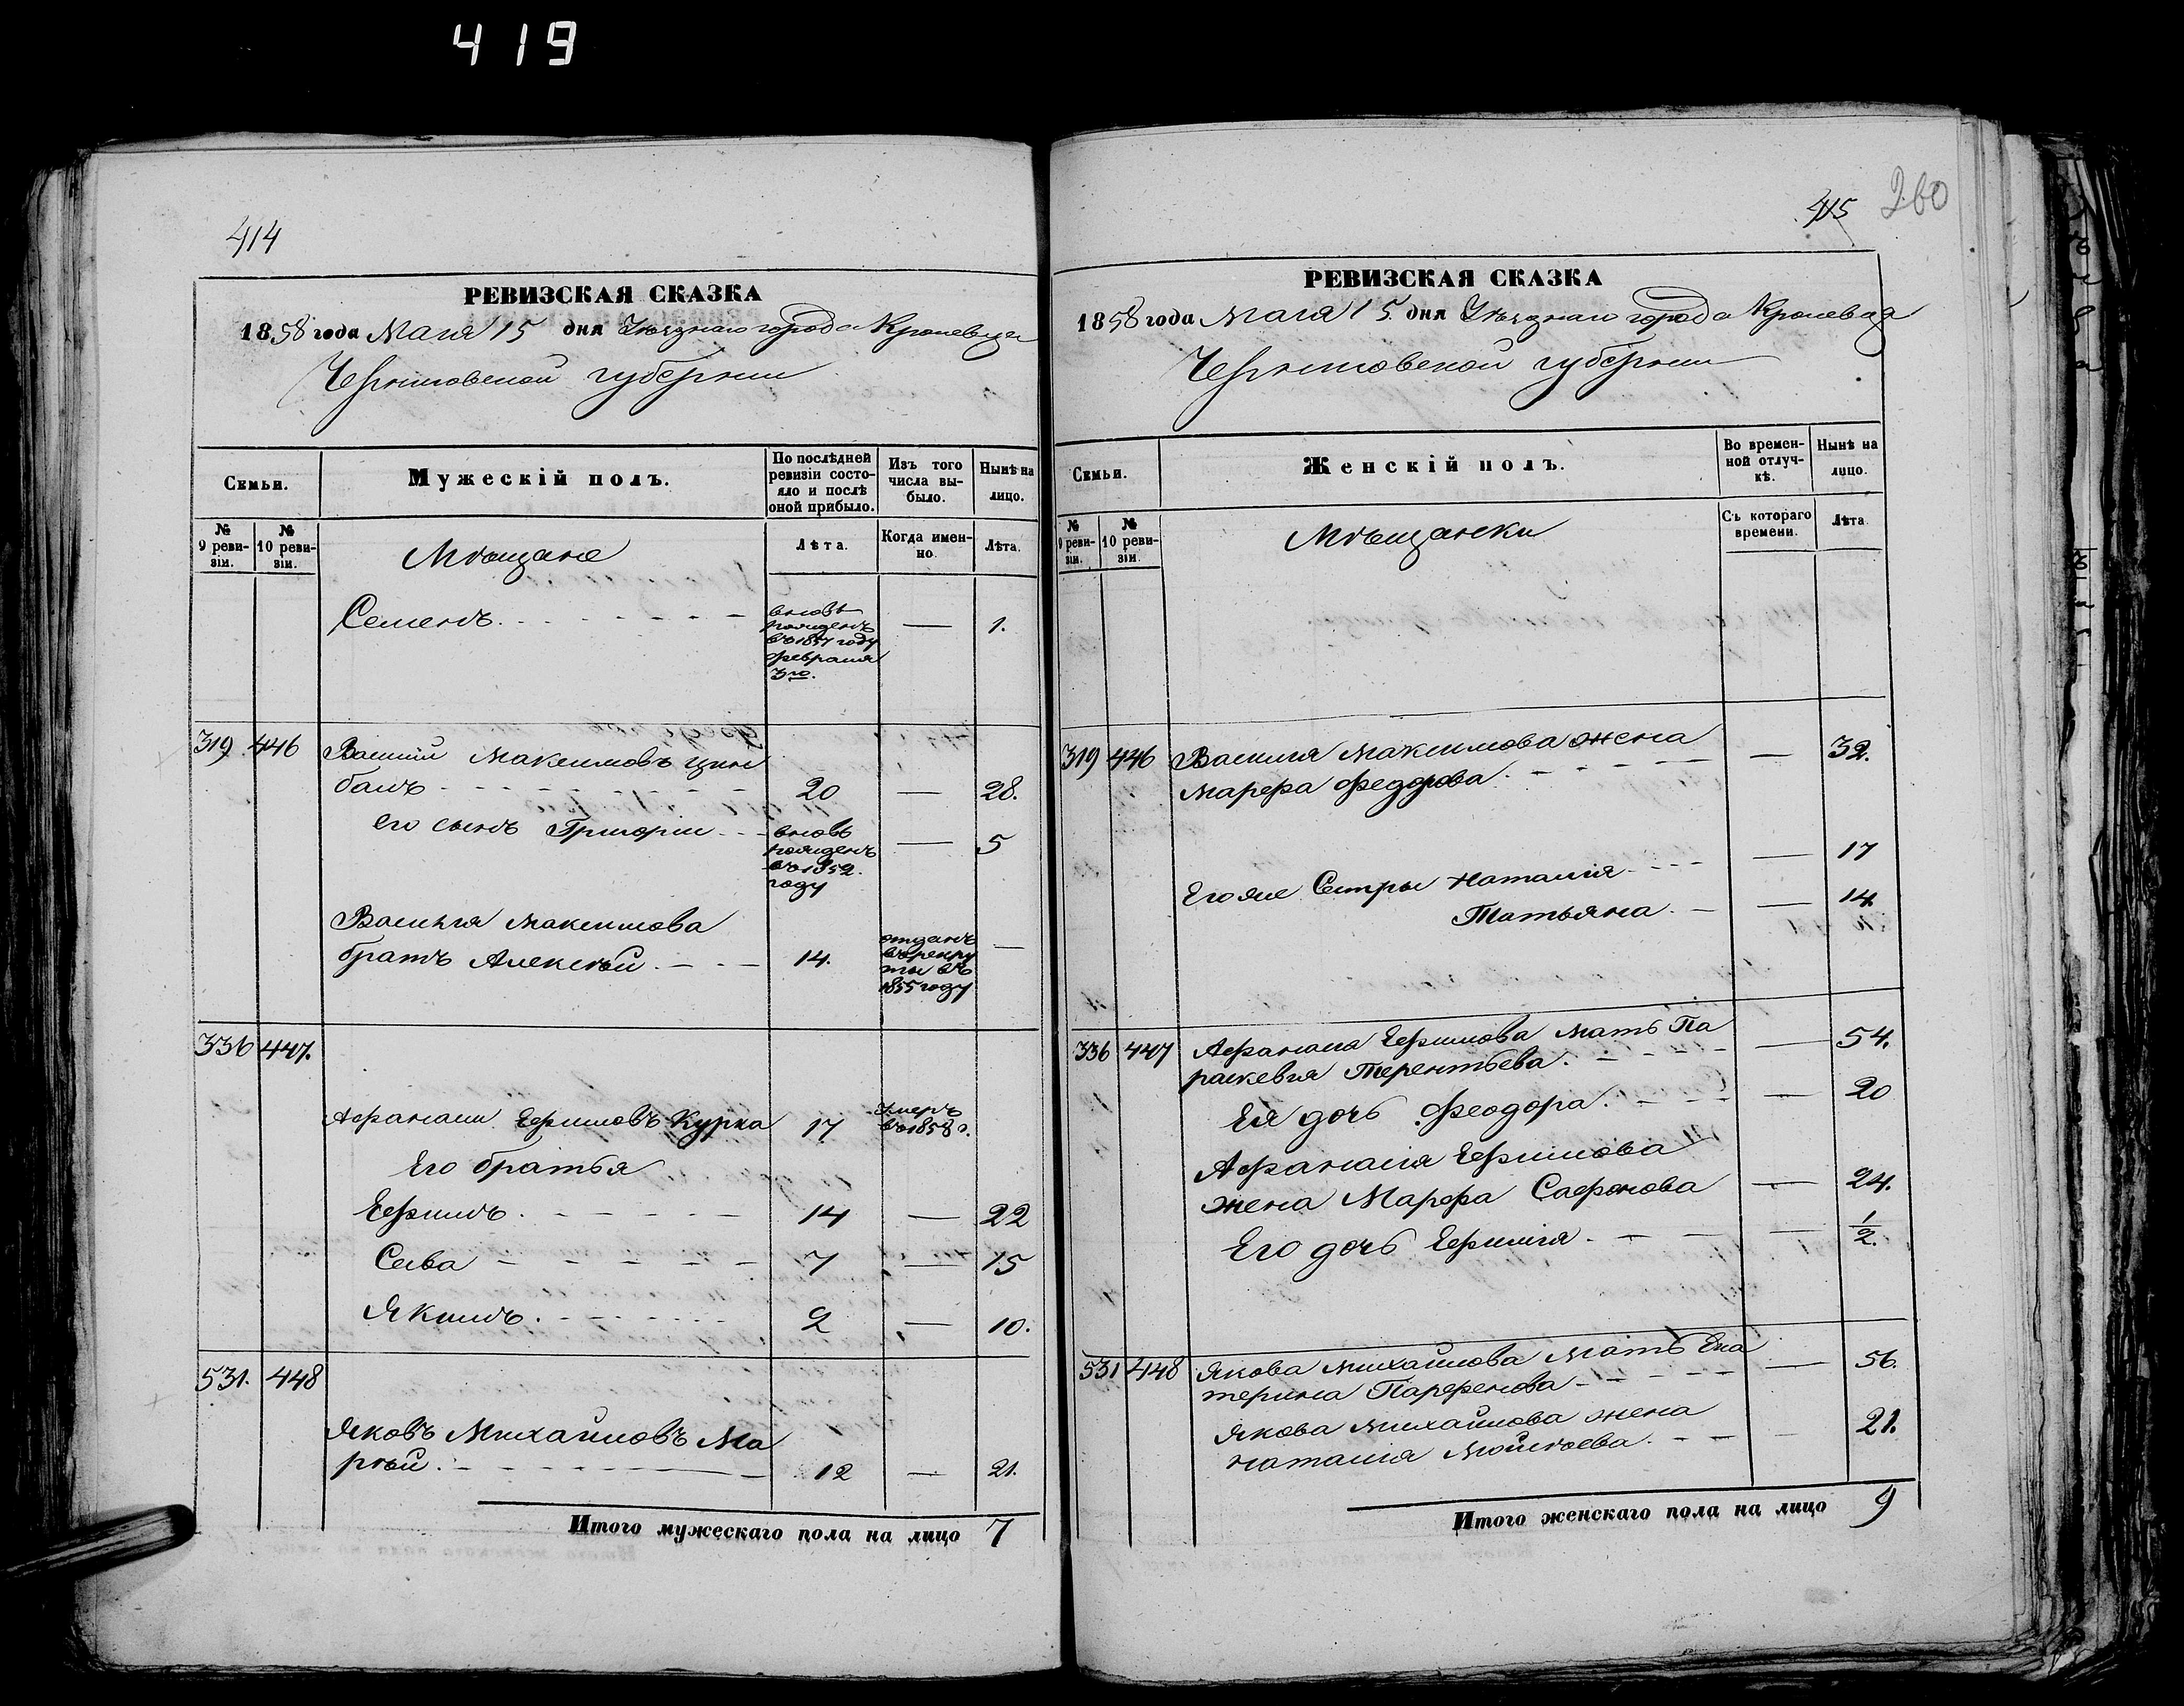 419
414
РЕВИЗСКАЯ СКАЗКА
1858 года Маія 15 дня Уѣзднаго города Кролевца
Черниговской губерніи
Семьи.
Мужескій полъ.
По послѣдней ревизіи состояло и послѣ оной прибыло.
Изъ того числа выбыло.
Нынѣ на лицо.
№ 9 ревизіи.
№ 10 ревизіи.
Мѣщане
Лѣта.
Когда именно.
Лѣта.
Семенъ. вновь рожденъ въ 1857 году февраля 3го. — 1.
319 446 Василій Максимовъ Цим
балъ 20 — 28.
его сынъ Григорій вновь рожденъ въ 1852. году — 5
Василья Максимова
братъ Алексѣй. 14. отданъ въ рекру ты въ 1855 году —
336 447.
Афанасій Ефимовъ Курка 17 умеръ въ 1858 г.
Его братья
Ефимъ. 14 — 22
Сава 7 — 15
Якимъ. 2 — 10.
531. 448
Яковъ Михайловъ Ма
рѣй. 12 — 21.
Итого мужескаго пола на лицо 7
415
260
РЕВИЗСКАЯ СКАЗКА
1858 года Маія 15 дня Уѣзднаго города Кролевца
Черниговской губерніи
Семьи.
Женскій полъ.
Во временной отлучкѣ.
Нынѣ на лицо.
№ 9 ревизіи.
№ 10 ревизіи.
Мѣщанки
Съ котораго времени.
Лѣта.
319 446 Василия Максимова жена — 32.
Марфа Федорова.
Его же Сестры Наталія — 17
Татьяна. — 14.
336 447 Афанасия Ефимова мать Па — 54.
раскевия Терентьева.
Ея дочь Феодора. — 20
Афанасія Ефимова
жена Марфа Сафонова — 24.
Его дочь Ефимія. — 1/2.
531 448 Якова Михайлова Мать Ека — 56.
терина Парфенова
Якова Михайлова жена 21.
Наталія Мойсѣева.
Итого женскаго пола на лицо 9